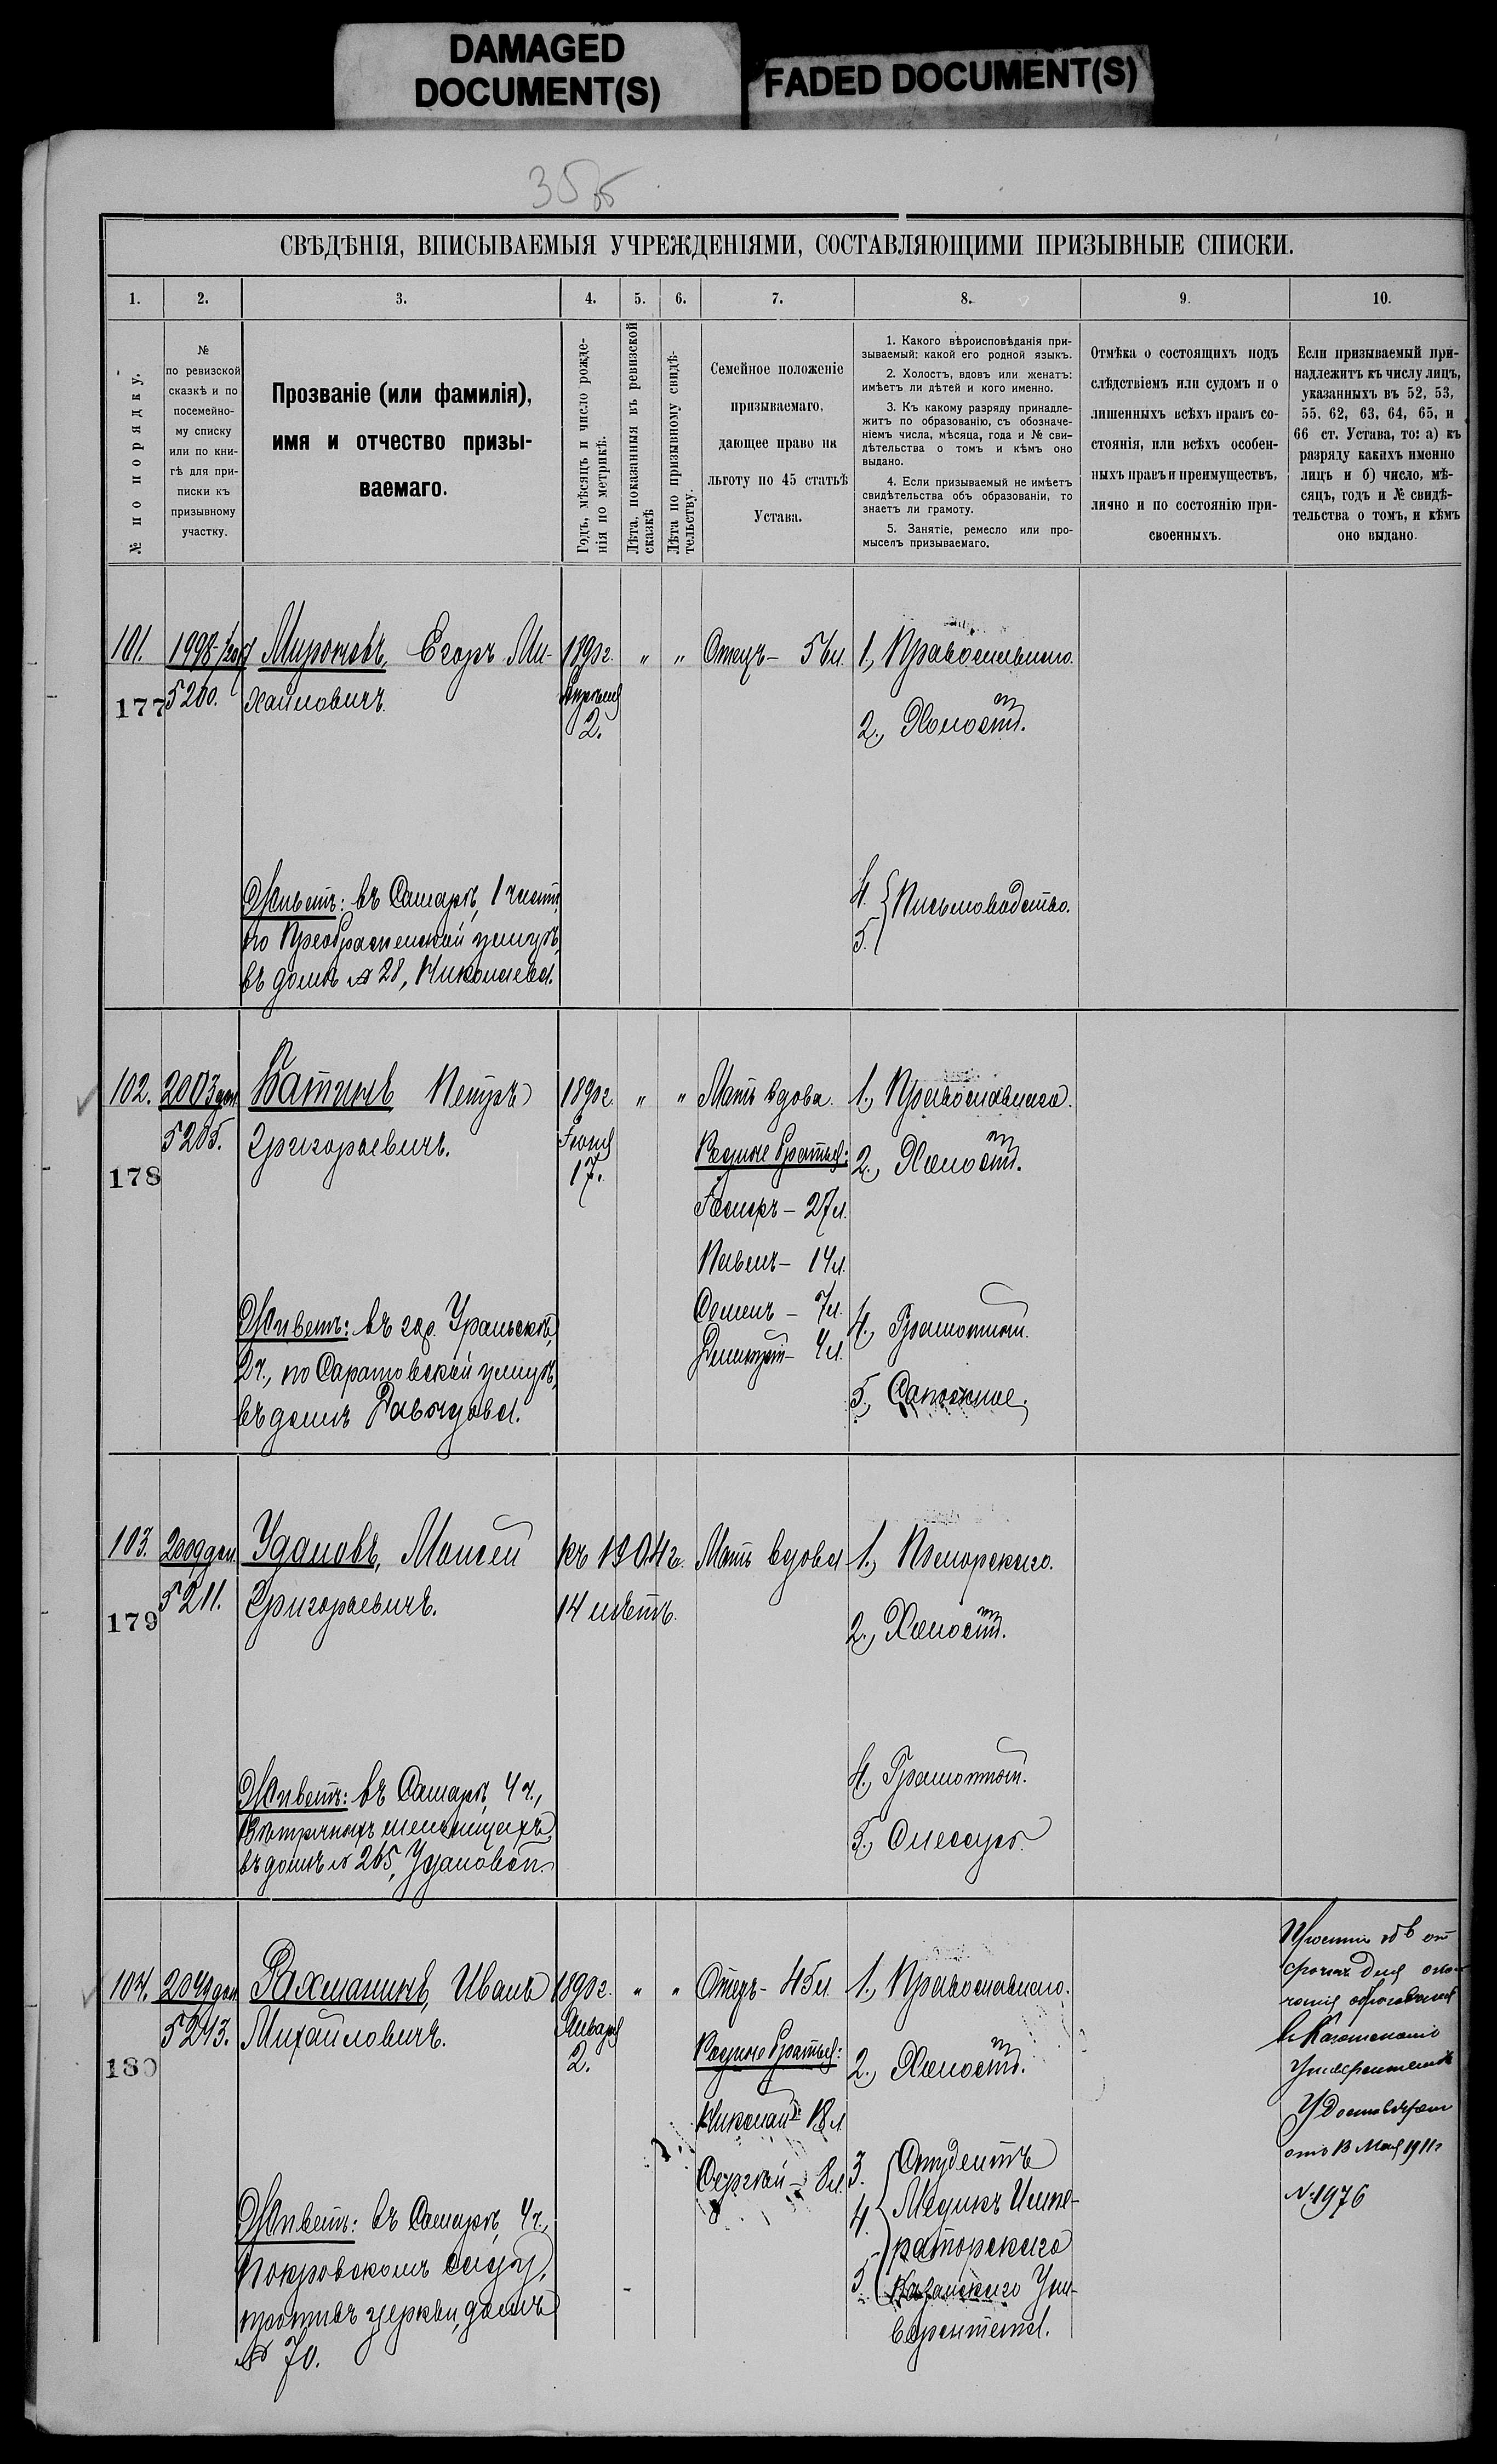 DAMAGED
DOCUMENT(S)
FADED DOCUMENT(S)
35об
СВѢДѢНІЯ, ВПИСЫВАЕМЫЯ УЧРЕЖДЕНІЯМИ, СОСТАВЛЯЮЩИМИ ПРИЗЫВНЫЕ СПИСКИ.
1. 2. 3. 4. 5. 6. 7. 8. 9. 10.
№ по порядку.
№
по ревизской
сказкѣ и по
посемейно-
му списку
или по кни-
гѣ для при-
писки къ
призывному
участку.
Прозваніе (или фамилія),
имя и отчество призы-
ваемаго.
Годъ, мѣсяцъ и число рожде-
нія по метрикѣ.
Лѣта, показанныя въ ревизской
сказкѣ
Лѣта по призывному свидѣ-
тельству.
Семейное положеніе
призываемаго,
дающее право на
льготу по 45 статьѣ
Устава.
1. Какого вѣроисповѣданія при-
зываемый: какой его родной языкъ.
2. Холостъ, вдовъ или женатъ:
имѣетъ ли дѣтей и кого именно.
3. Къ какому разряду принадле-
житъ по образованію, съ обозначе-
ніемъ числа, мѣсяца, года и № сви-
дѣтельства о томъ и кѣмъ оно
выдано.
4. Если призываемый не имѣетъ
свидѣтельства объ образованіи, то
знаетъ ли грамоту.
5. Занятіе, ремесло или про-
мыселъ призываемаго.
Отмѣка о состоящихъ подъ
слѣдствіемъ или судомъ и о
лишенныхъ всѣхъ правъ со-
стоянія, или всѣхъ особен-
ныхъ правъ и преимуществъ,
лично и по состоянію при-
своенныхъ.
Если призываемый при-
надлежитъ къ числу лицъ,
указанныхъ въ 52, 53,
55. 62, 63, 64, 65, и
66 ст. Устава, то: а) къ
разряду какихъ именно
лицъ и б) число, мѣ-
сяцъ, годъ и № свидѣ-
тельства о томъ, и кѣмъ
оно выдано.
101.
177
1998
5200.
Мироновъ, Егоръ Ми-
хайловичъ.
Живетъ: въ Самарѣ, 1 части,
по Преображенской улицѣ,
въ домѣ № 28, Николаева.
1890г.
Апрѣля
2.
" "
Отецъ - 56л.
1, Православнаго.
2., Холостъ.
4.
5.
Письмоводство.
102.
178
2003 доп.
5205.
Батинъ Петръ
Григорьевичъ.
Живетъ: въ гор. Уральскѣ,
2ч., по Саратовской улицѣ,
въ домѣ
1890г.
Іюня
17.
" "
Мать вдова.
Родные братья:
27л.
Павелъ - 14л.
Семенъ - 7л.
Димитрій - 4л.
1., Православнаго.
2., Холостъ.
4., Грамотный.
5., Сапожное.
103.
179
2009 доп.
5211.
Удаловъ, Моисей
Григорьевичъ.
Живетъ: въ Самарѣ, 4ч.,
Вѣтряныхъ мельницахъ,
въ домѣ № 265, Удаловой.
Къ 1904г.
14 лѣтъ.
Мать вдова
1., Поморскаго.
2., Холостъ.
4., Грамотный.
5., Слесарь.
104.
180
доп.
5243.
Рахманинъ, Иванъ
Михайловичъ.
Живетъ: въ Самарѣ, 4ч.,
Покровскомъ саду,
противъ церкви, домъ
№ 70.
1890г.
Января
2.
" "
Отецъ - 45л.
Родные братья:
Николай - 18л.
Сергѣй - 8л.
1., Православнаго.
2., Холостъ.
3.
4.
5.
Студентъ
Медикъ Импе-
раторскаго
Казанскаго Уни-
верситета.
от-
срочкѣ для окон-
чанія образованія
въ Казанскомъ
Университетѣ
отъ 13 Мая 1911г
№ 1976